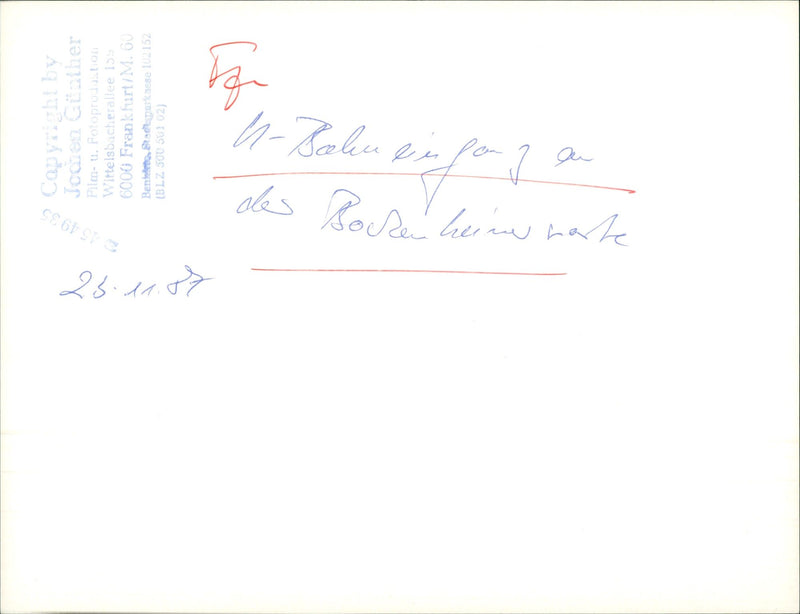 Copyright by
Jochen Günther
Film- u. Fotoproduktion
Wittelsbacherallee 133
6000 Frankfurt/M. 60
Stadtsparkasse 102152
(BLZ 500 501 02)
Ffm
U-Bahneingang an
der Bockenheimer warte
23.11.87